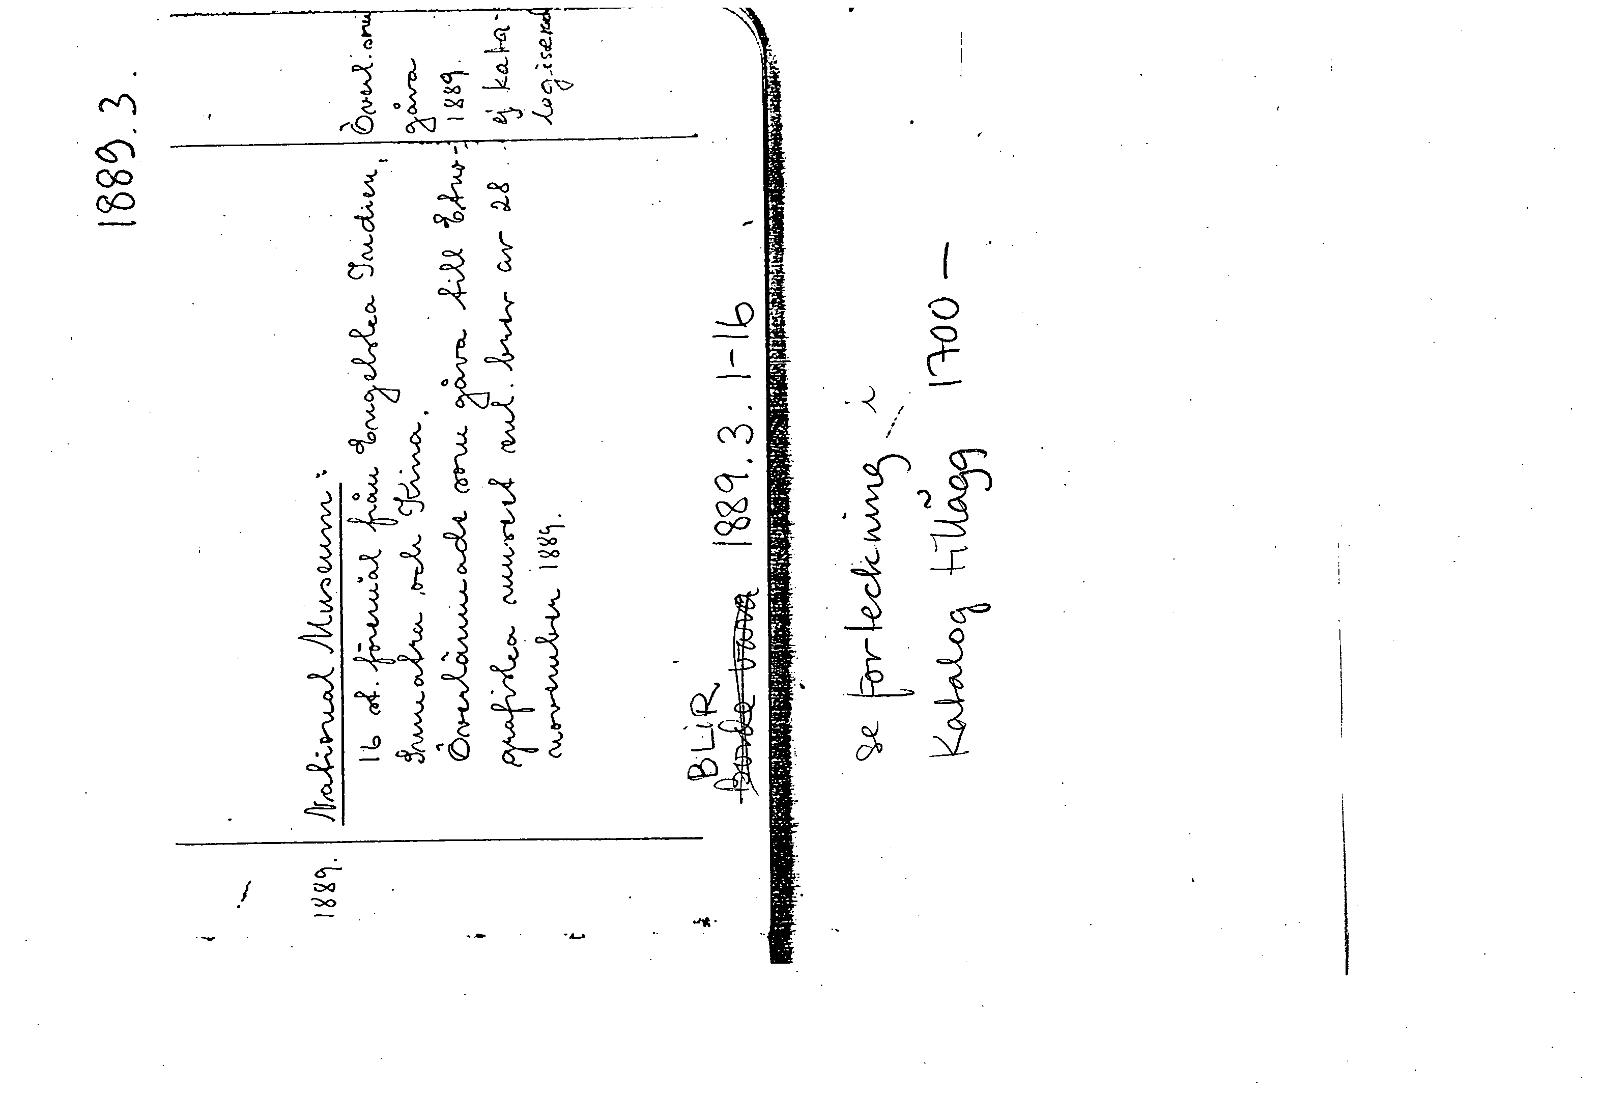 1889.3.
1889.
National Museum:
16 st. föremål från Engelska Indien,
Sumatra och Kina.
Överlämnade som gåva till Etno-
grafiska museet enl. brev av 28
november 1889.
Överl. som
gåva
1889.
ej kata-
logiserad
BLIR
borde vara 1889.3.1-16
se förteckning i
Katalog tillägg 1700 —